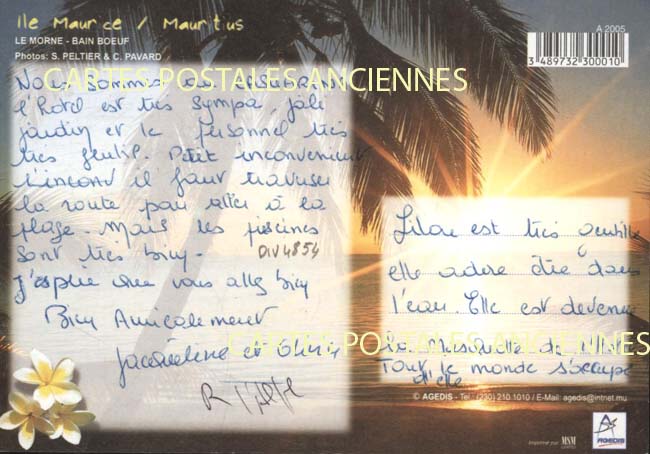 Ile Maurice / Mauritius
LE MORNE - BAIN BOEUF
Photos: S. PELTIER & C. PAVARD
A.2005
3 489732 300010
CARTES POSTALES ANCIENNES
Nous sommes
l'hotel est très sympa. joli
jardin et le personnel très
très gentil. Petit inconvenient
il faut traverser
la route pour aller à la
plage. Mais les piscines
sont très bien.
DIV4854
J'espère que vous allez bien
Bien Amicalement
Jacqueline et
est très gentille
elle adore être dans
l'eau. Elle est devenue
CARTES POSTALES ANCIENNES
la Mascotte de
Tout le monde s'occupe
d'elle
© AGEDIS - Tel.: (230) 210 1010 / E-Mail: agedis@intnet.mu
Imprimé par MSM
AGEDIS